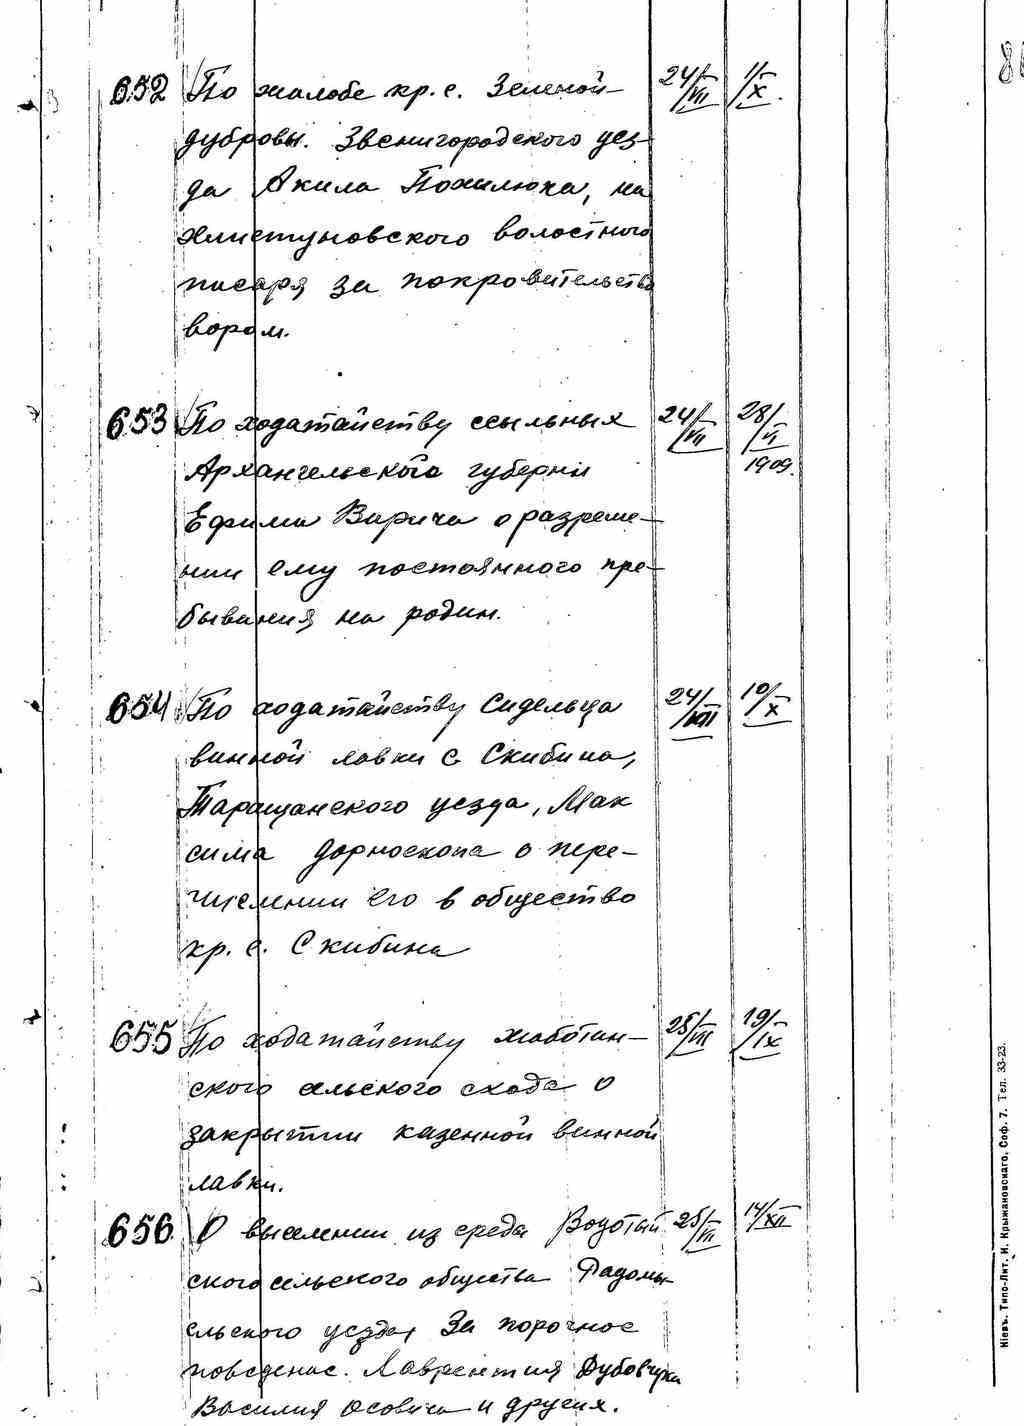 652 По жалобе кр. с. Зеленой- 24/VII 1/X.
дубровы. Звенигородского уез-
да Акила Похилюка, на
Хлистуновского волостного
писаря за покровительство
ворам.
653 По ходатайству ссыльных 24/VII 28/II 1909.
Архангельского губернии
Ефима Варича о разреше-
нии ему постоянного пре-
бывания на родин.
654 По ходатайству Сидельца 24/VII 10/X
винной лавки с. Скибина,
Таращанского уезда, Мак
сима Дорноскопа о пере-
числении его в общество
кр. с. Скибина
655 По ходатайству 25/VII 19/IX
ского сельского схода о
закрытии казенной винной
лавки.
656 О выселении из среда 25/VII 14/XII
ского сельского общества Радомы
сльского уезда, За порочное
поведение. Лаврентия
Василия Осовича и других.
Кіевъ. Типо-Лит. И. Крыжановскаго, Соф. 7. Тел. 33-23.